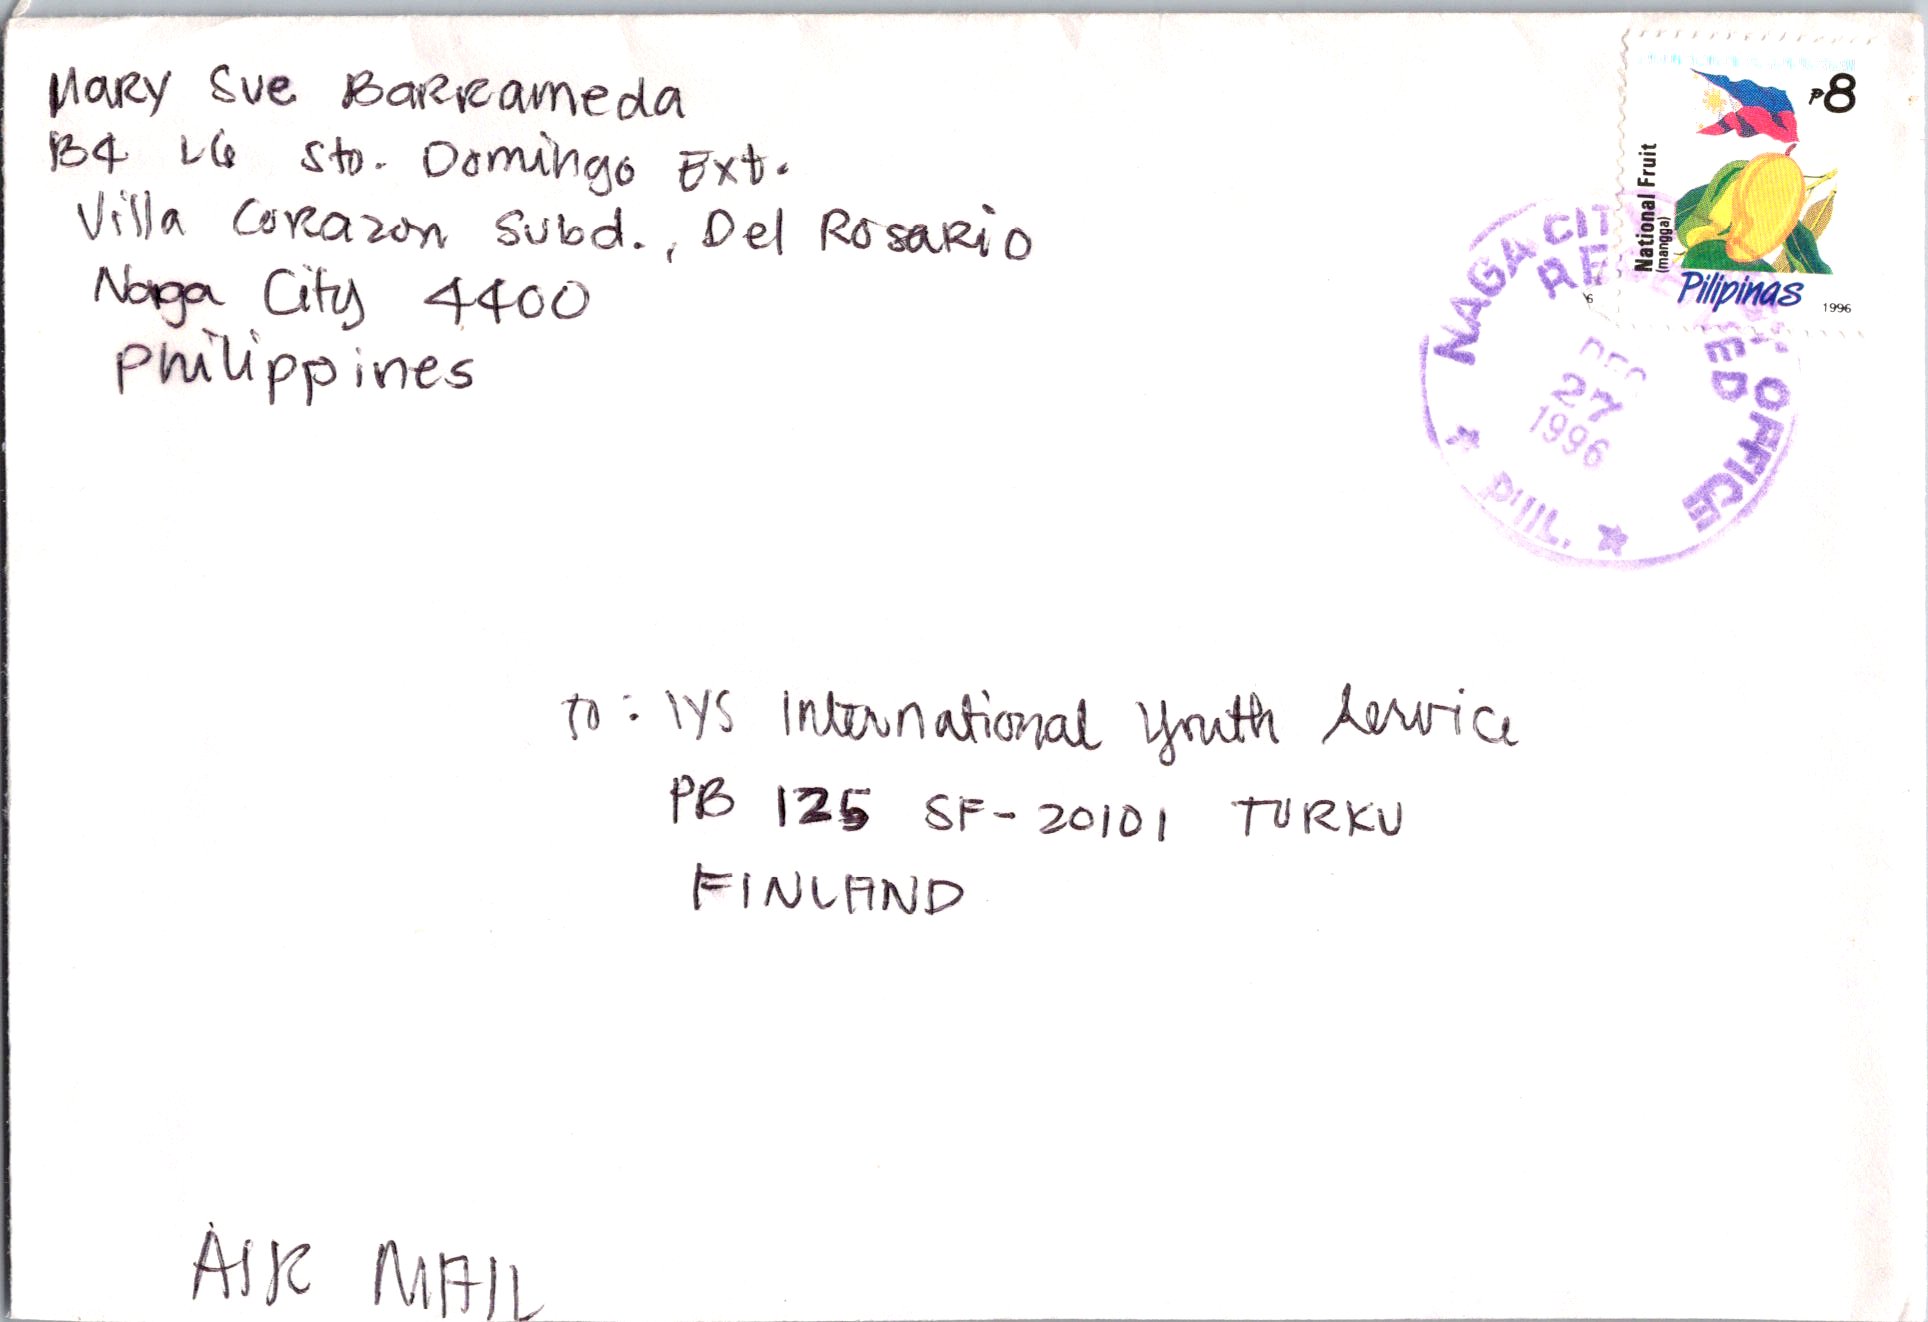 Mary Sue Barrameda
B4 L6 Sto. Domingo Ext.
Villa Corazon Subd., Del Rosario
Naga City 4400
Philippines
₱8
National Fruit
(mangga)
Pilipinas
1996
NAGA CITY
OFFICE
DEC
27
1996
PHIL.
To: IYS International Youth Service
PB 125 SF-20101 TURKU
FINLAND
AIR MAIL